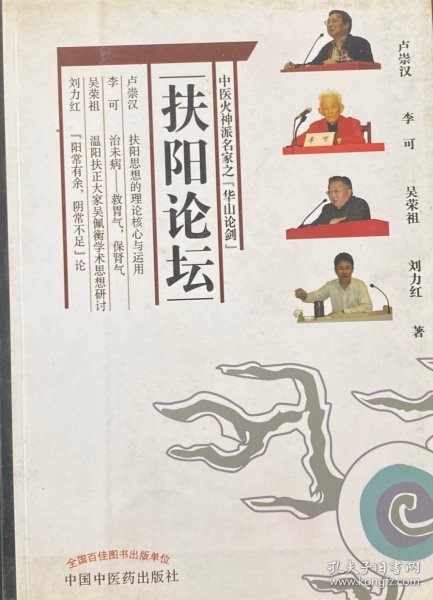 卢崇汉 李可 吴荣祖 刘力红 著
李可
中医火神派名家之『华山论剑』
扶阳论坛
卢崇汉 扶阳思想的理论核心与运用
李可 治未病——救胃气，保肾气
吴荣祖 温阳扶正大家吴佩衡学术思想研讨
刘力红 『阳常有余，阴常不足』论
全国百佳图书出版单位
中国中医药出版社
孔夫子旧书网
www.kongfz.com